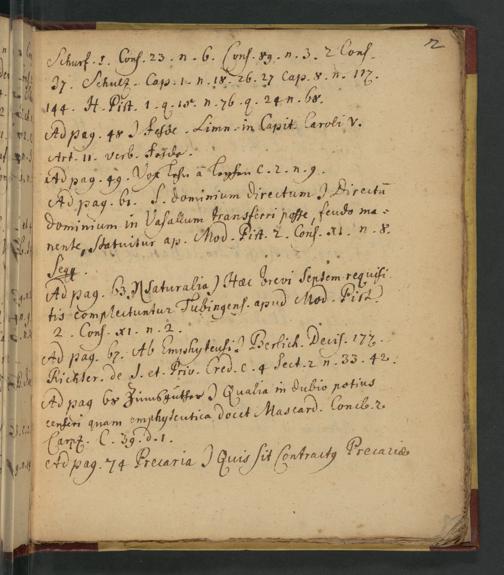 12
Schurf. 1. Cons. 23. n. 6. Cons. 89. n. 3. 2 Cons.
37. Schultz. Cap. 1. n. 18. 26. 27 Cap. 8. n. 117.
144. H. Pist. 1. q. 15. n. 76. q. 24 n. 68.
Ad pag. 48 ) Fehde. Limn. in Capit. Caroli V.
Art. 11. verb. Fehde.
Ad pag. 49. Von Lehn â C. 2. n. 9.
Ad pag. 61. S. dominium directum ) Directū
dominium in Vasallum transferri posse, feudo ma-
nente, statuitur ap. Mod. Pist. 2. Cons. XI. n. 8.
seqq.
Ad pag. 63. Naturalia ) Hæc brevi septem requisi
tis complectuntur Tubingens. apud Mod. Pist.
2. Cons. XI. n. 2.
Ad pag. 67. Ab Emphyteusi ) Berlich. Decis. 177.
Richter. de J. et Priv. Cred. C. 4 Sect. 2. n. 33. 42.
Ad pag 68 Zinnsgütter ) Qualia in dubio potius
censeri quam emphyteutica, docet Mascard. Concl. 2.
Carpz. C. 39. d. 1.
Ad pag. 74 Precaria ) Quis sit Contractus Precariæ